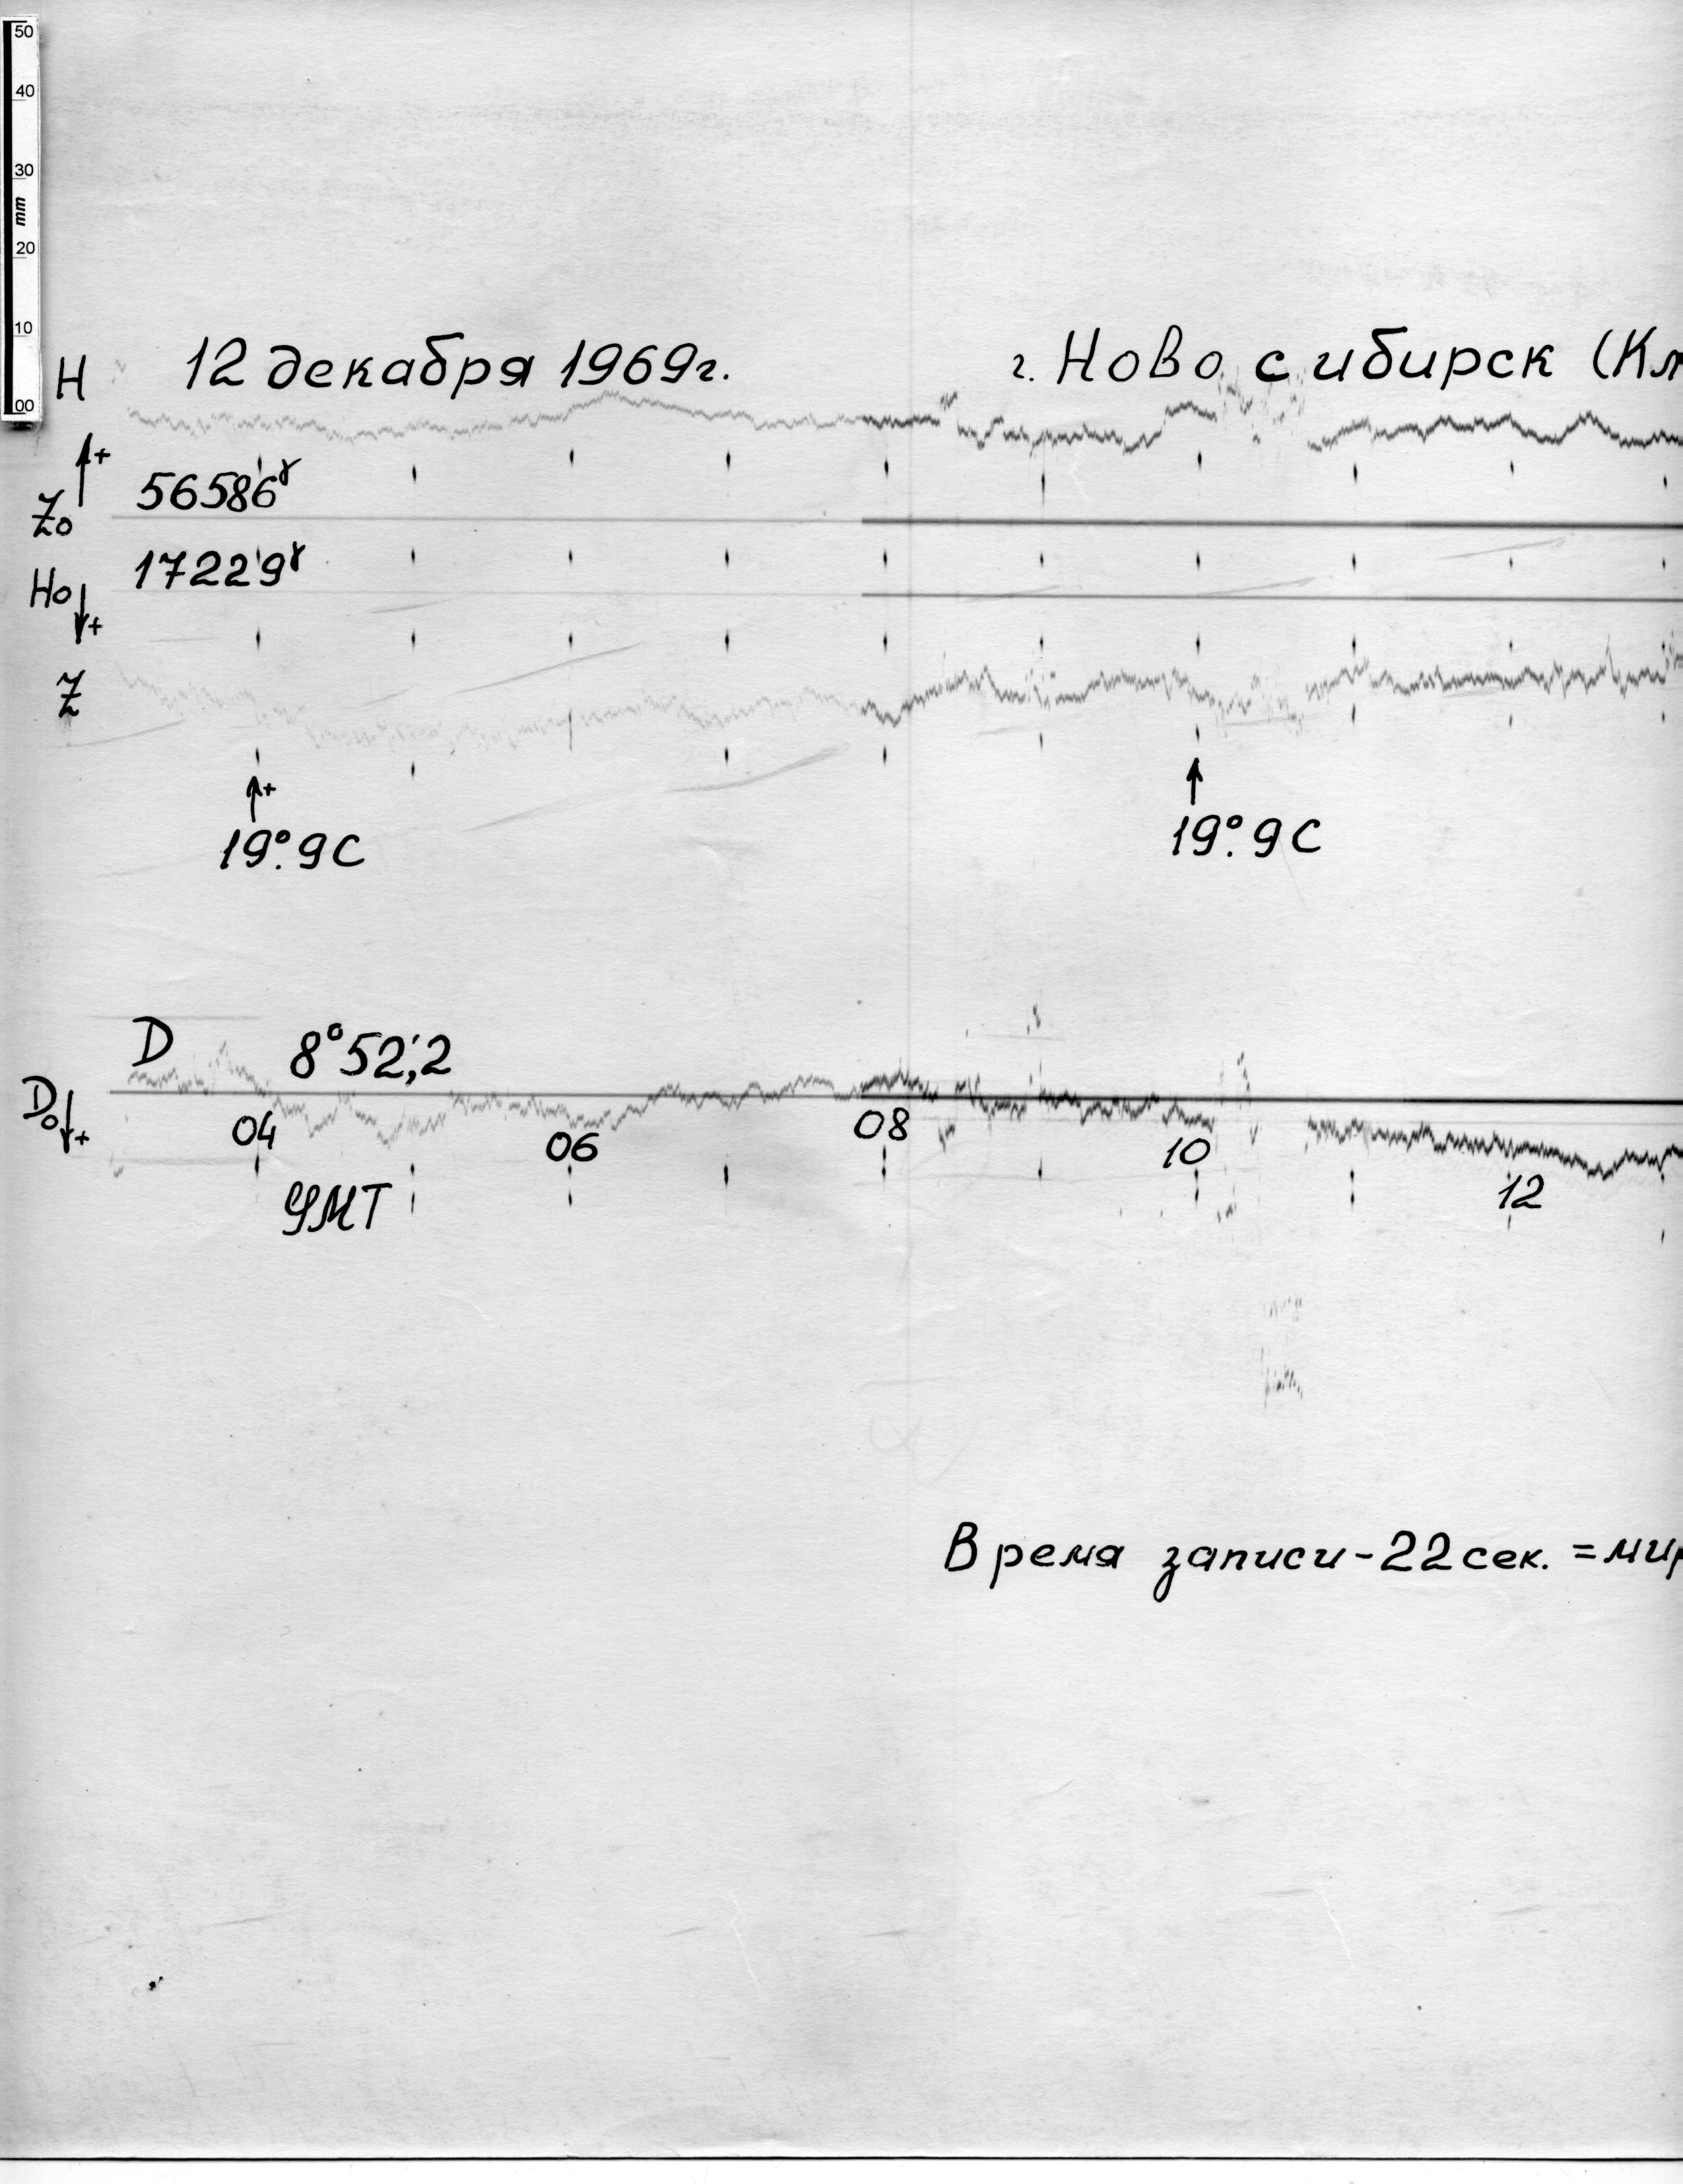 50
40
30
mm
20
10
00
H 12 декабря 1969г. г. Новосибирск (Кл
+
Z₀ 56586ᵞ
H₀ 17229ᵞ
+
Z
+
19°.9C 19°.9C
D 8°52',2
D₀ +
04 06 08 10 12
УМТ
Время записи-22сек. =